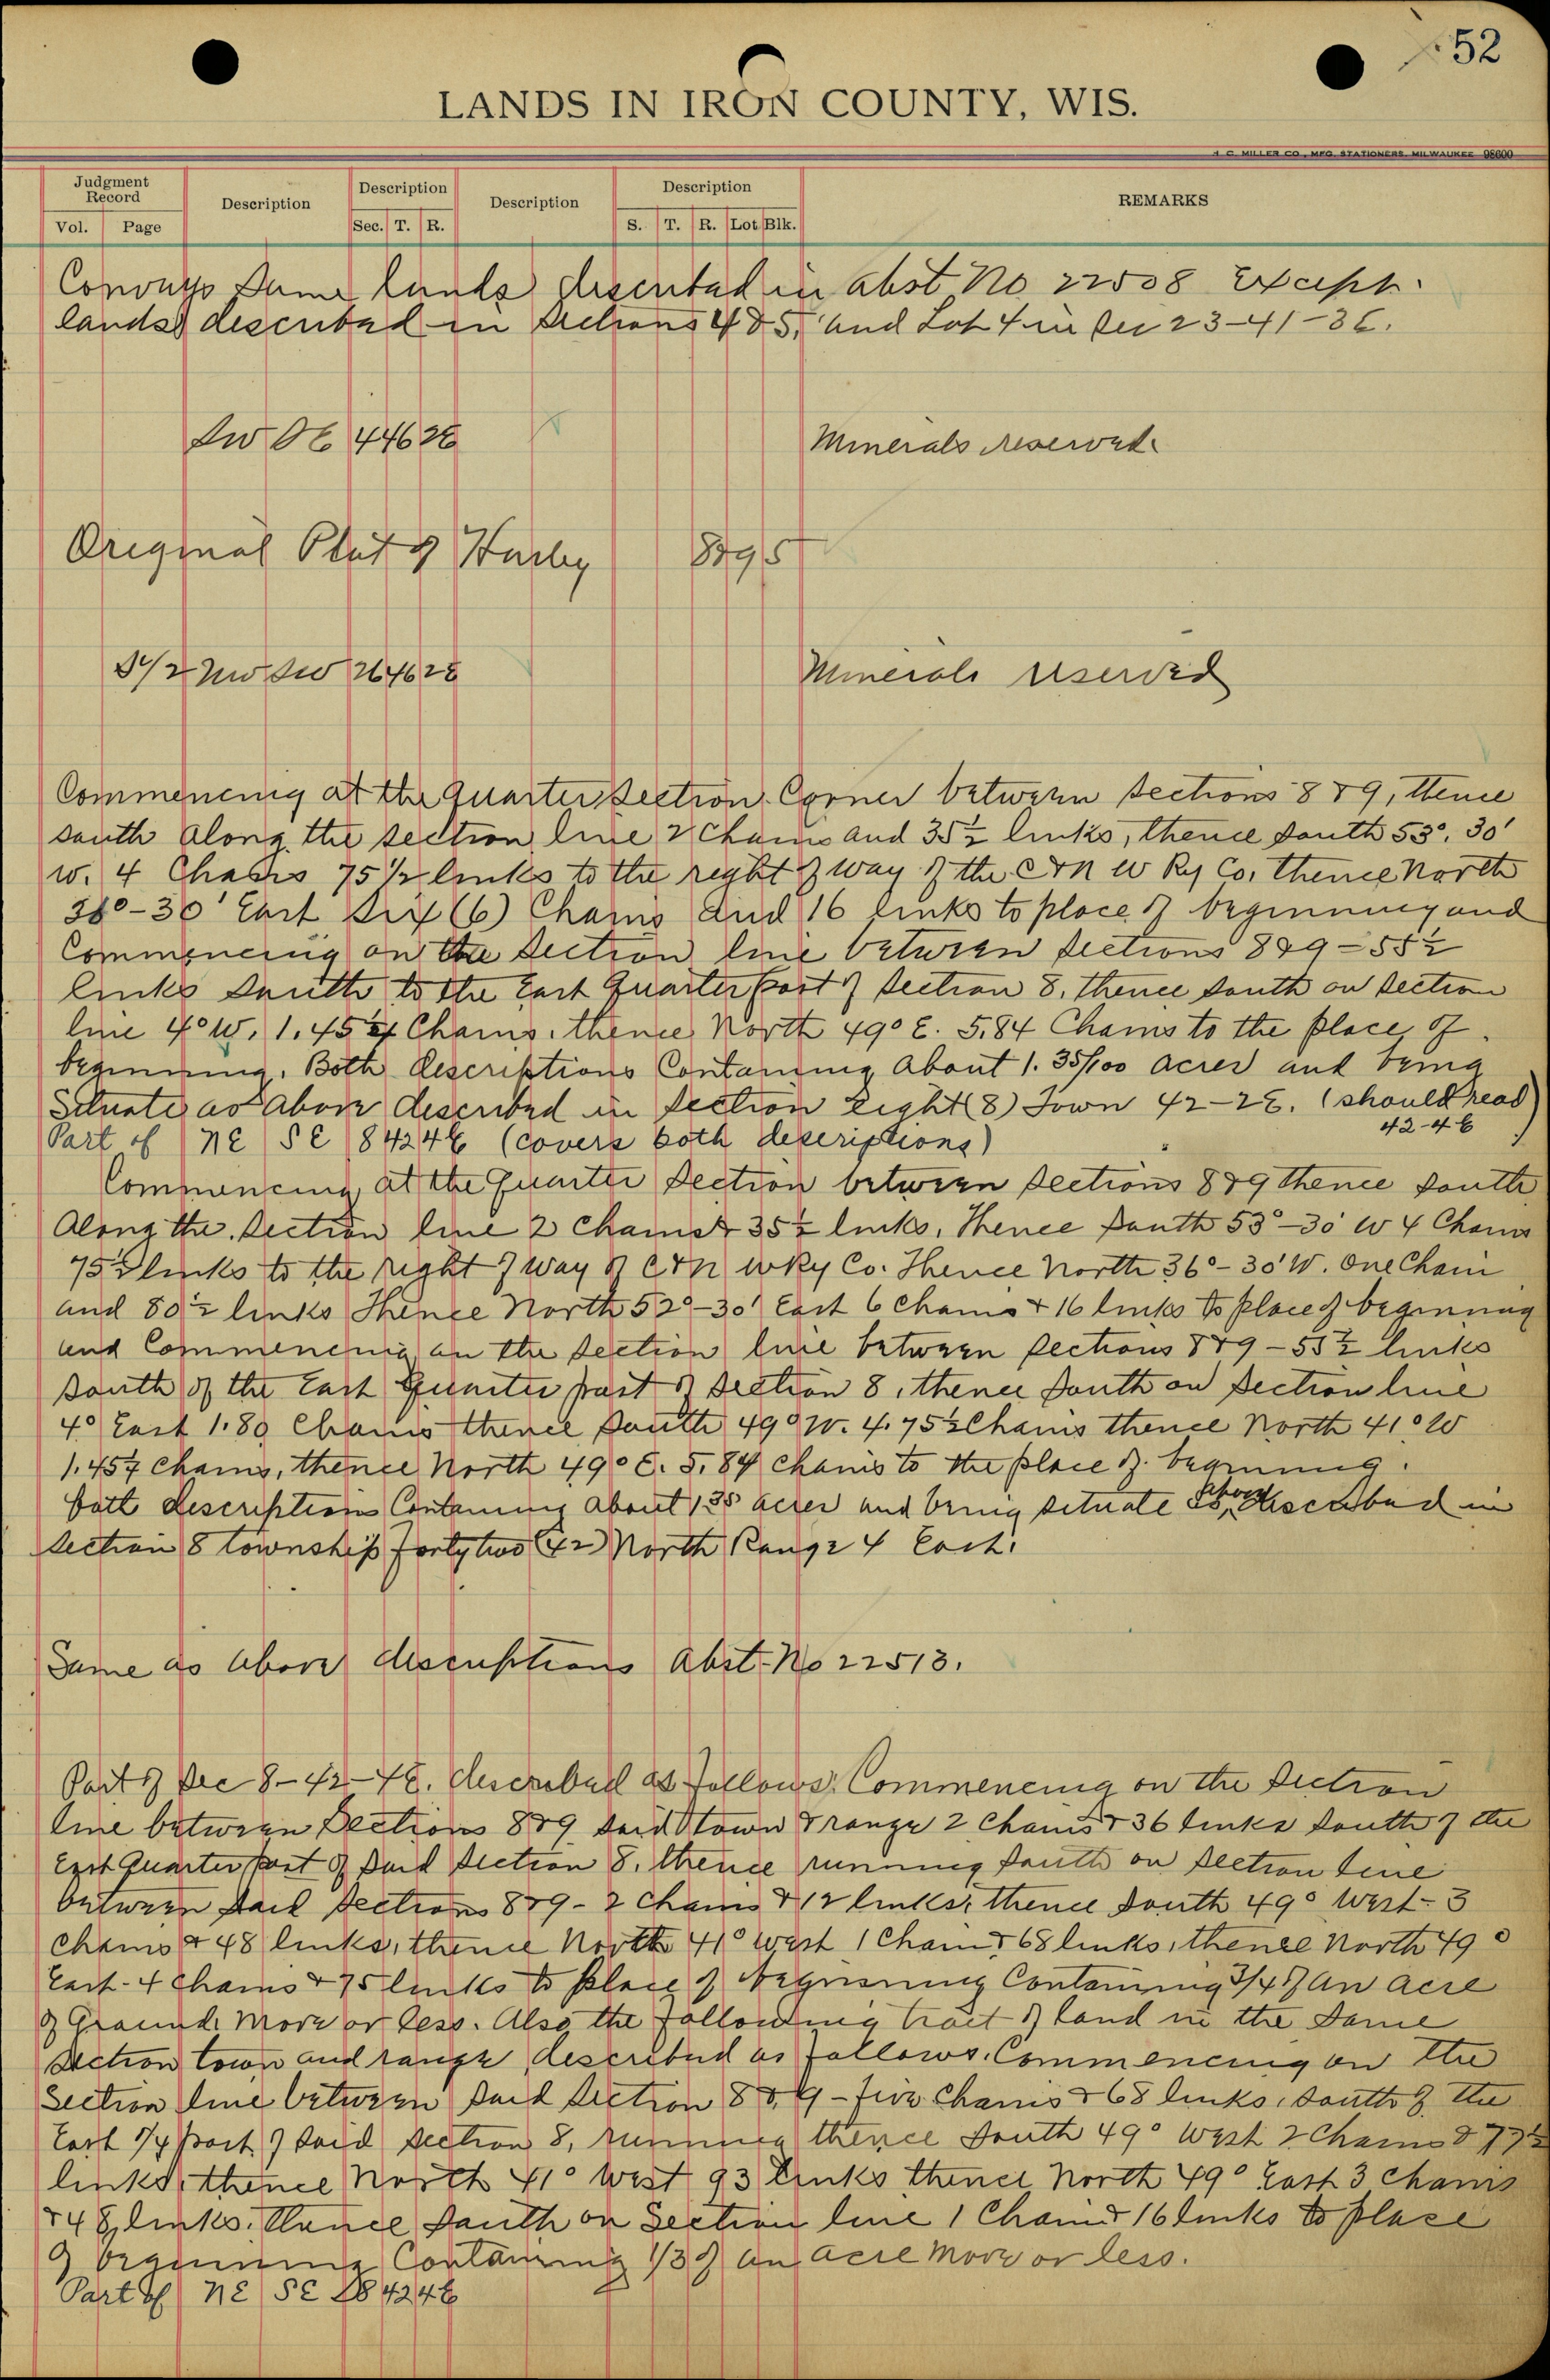 52
LANDS IN IRON COUNTY, WIS.
H. C. MILLER CO., MFG. STATIONERS, MILWAUKEE 98600
Judgment Record
Description
Description
Description
Description
REMARKS
Vol. Page
Sec. T. R.
S. T. R. Lot Blk.
Conveys Same lands described in abst No 22508 Except
lands described in Sections 4 & 5, and Lot 4 in Sec 23-41-3E.
Minerals reserved
Original Plat of Hurley
S 1/2 NW SW 26 46 2E
Minerals reserved
Commencing at the Quarter Section Corner between sections 8 & 9, thence
south along the section line 2 Chains and 35 1/2 links, thence South 53°, 30'
W. 4 Chains 75 1/2 links to the right of way of the C & N W Ry Co. thence North
-30' East Six (6) Chains and 16 links to place of beginning and
Commencing on the Section line between sections 8 & 9 - 55 1/2
links South to the East Quarter Post of Section 8, thence south on section
line 4° W. 1.45 Chains. thence North 49° E. 5.84 Chains to the place of
beginning. Both descriptions Containing about 1.35/100 acres and being
Situate as above described in Section Eight (8) Town 42-2E. (should read
42-4E)
Part of NE SE 8 42 4E (covers both descriptions)
Commencing at the Quarter Section between sections 8 & 9 thence South
Along the Section line 2 Chains & 35 1/2 links, Thence South 53°-30' W 4 Chains
75 1/2 links to the right of way of C & N W Ry Co. Thence North 36°-30' W. One Chain
and 80 1/2 links Thence North 52°-30' East 6 Chains & 16 links to place of beginning
and Commencing on the Section line between Sections 8 & 9 - 55 1/2 links
South of the East Quarter post of Section 8, thence South on Section line
4° East 1.80 Chains thence South 49° W. 4.75 1/2 Chains thence North 41° W
1.45 chains, thence North 49° E. 5.84 Chains to the place of beginning.
both descriptions Containing about 1.35 acres and being situate as above described in
Section 8 township Forty two (42) North Range 4 East.
Same as above descriptions Abst. No 22513.
Part of Sec 8-42-4E. described as follows: Commencing on the Section
line between Sections 8 & 9 said town & range 2 Chains & 36 links South of the
East Quarter Post of said Section 8, thence running South on section line
between said sections 8 & 9 - 2 Chains & 12 links, thence South 49° West - 3
chains & 48 links, thence North 41° West 1 Chain & 68 links, thence North 49°
East - 4 Chains & 75 links to place of beginning Containing 3/4 of an acre
of Ground More or less. Also the following tract of land in the same
Section town and range described as follows. Commencing on the
Section line between said Section 8 & 9 - five Chains & 68 links, South of the
East 1/4 Post of said Section 8, running thence South 49° West 2 Chains & 77 1/2
links, thence North 41° West 93 links thence North 49° East 3 Chains
& 48 links. Thence South on Section line 1 Chain & 16 links to place
of beginning Containing 1/3 of an acre more or less.
Part of NE SE 8 42 4E